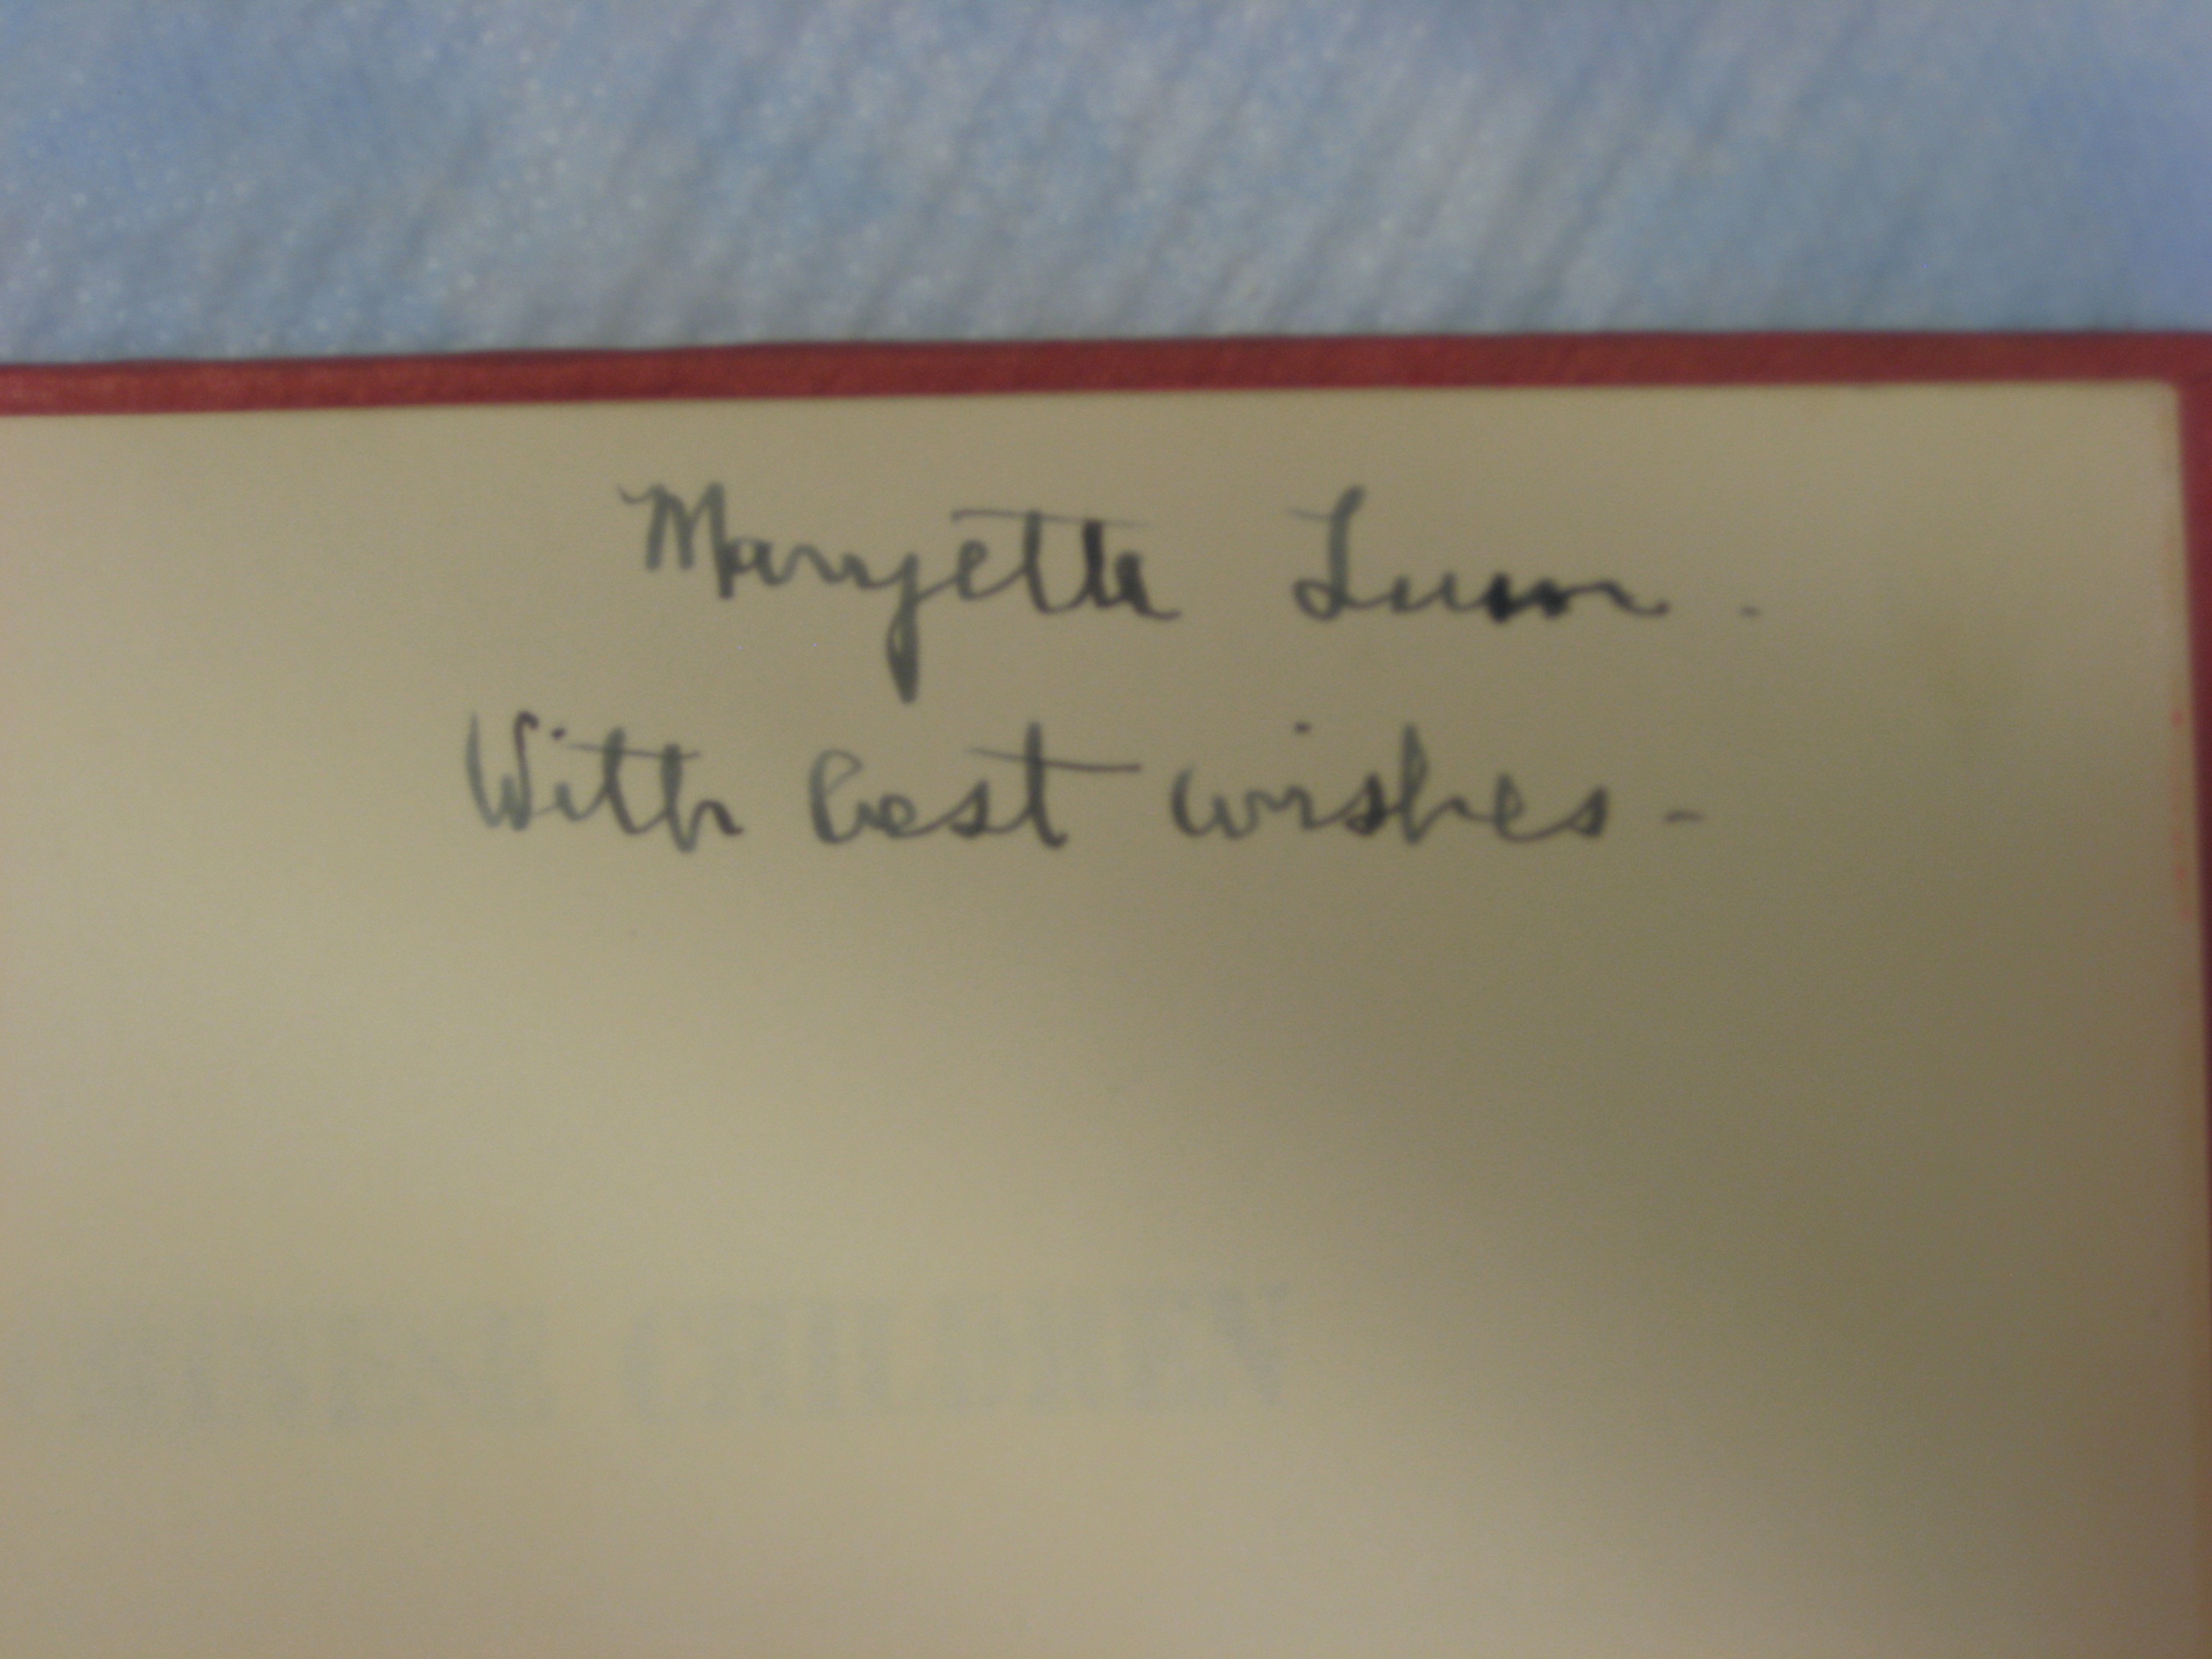 Maryette Lum.
With best wishes -